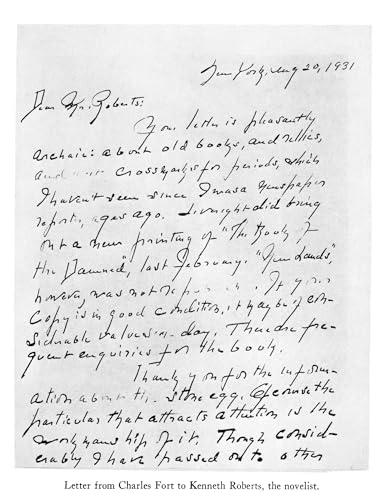 New York, Aug 20, 1931
Dear Mr. Roberts:
Your letter is pleasantly
archaic: about old books, and relics,
and crossmarks for periods, which
I havent seen since I was a newspaper
reporter, ages ago. Liveright did bring
out a new printing of "The Book of
the Damned", last February. "New Lands",
however, was not . If your
copy is in good condition, it may be of con-
siderable value some day. There are fre-
quent enquiries for the book.
Thank you for the inform-
ation about the stone egg. Of course the
particular that attracts attention is the
workmanship of it. Though consid-
erably I have passed on to other
Letter from Charles Fort to Kenneth Roberts, the novelist.